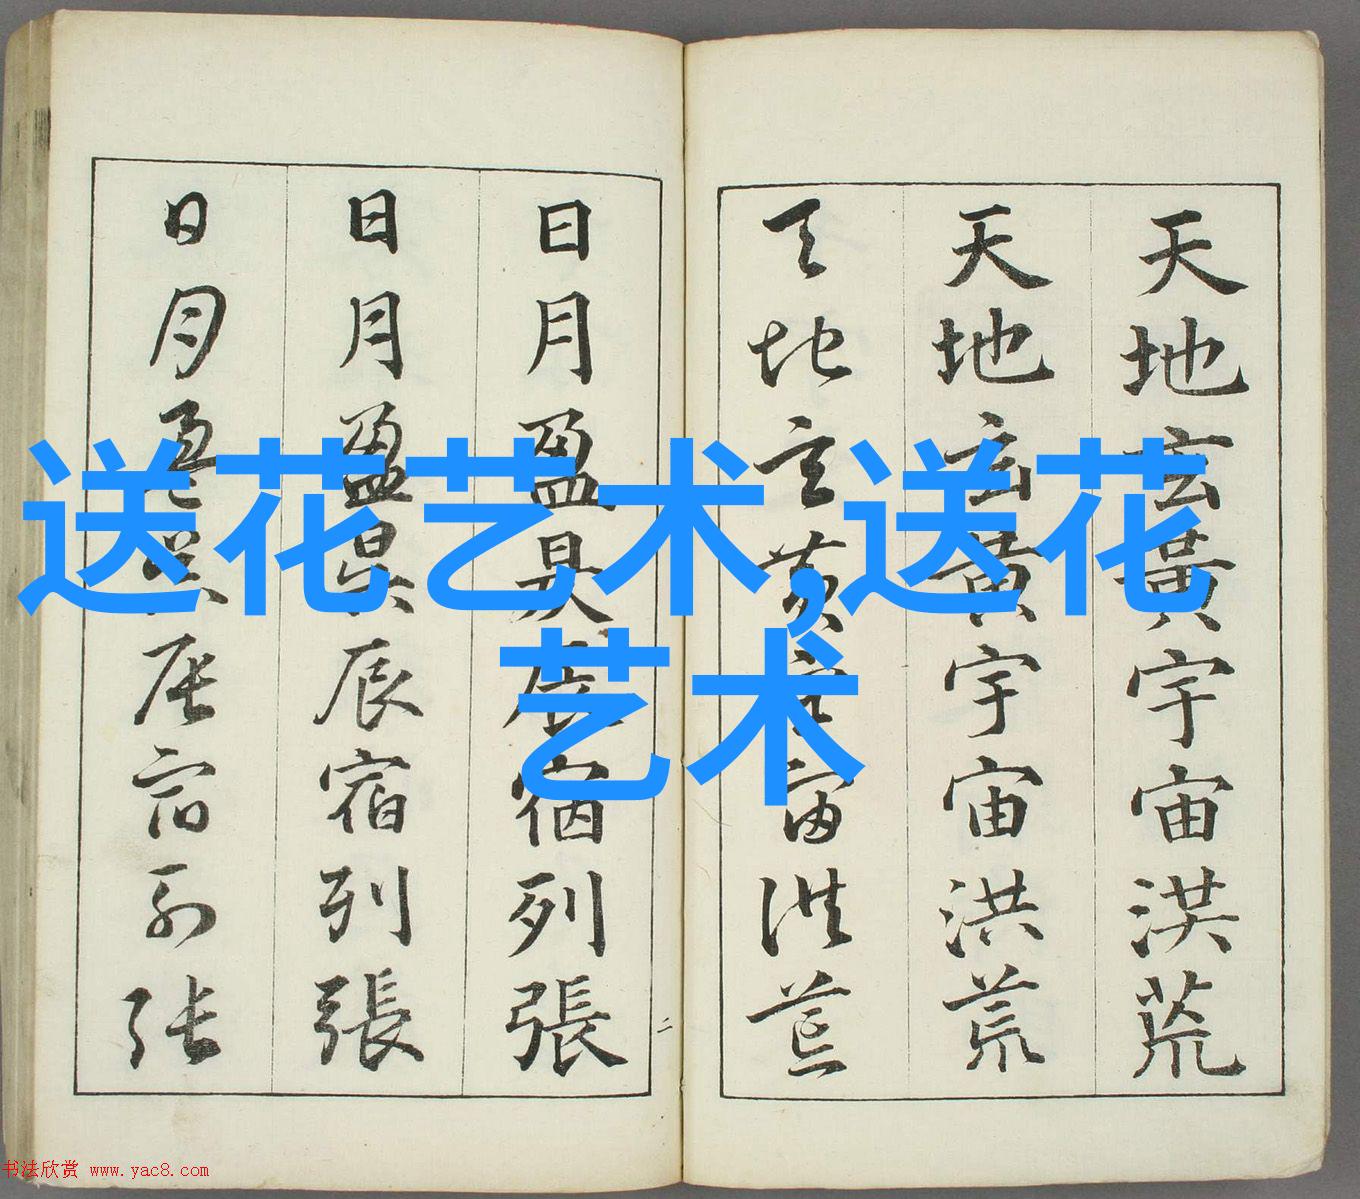 天地玄黃宇宙洪荒
天地玄黃宇宙洪荒
天地玄黃宇宙洪荒
二
日月盈昃辰宿列張
日月盈昃辰宿列張
日月盈昃辰宿列張
送花艺术,送花
艺术
书法欣赏 www.yac8.com